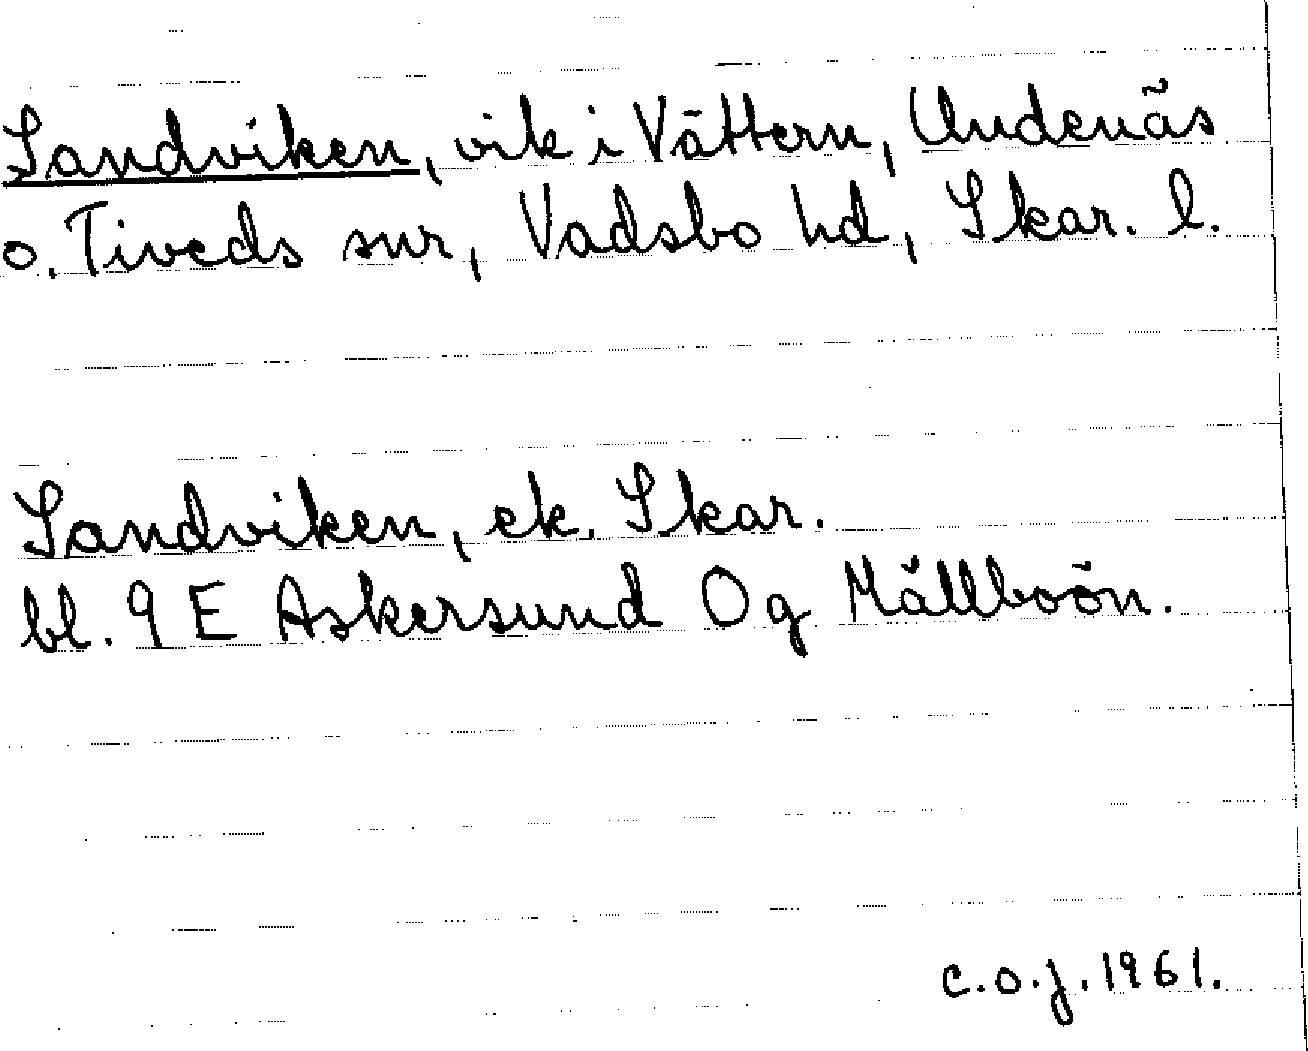 Sandviken, vik i Vättern, Undenäs
o. Tiveds snr, Vadsbo hd, Skar. l.
Sandviken, ek. Skar.
bl. 9 E Askersund 0 g Mällboön.
c.o.j. 1961.